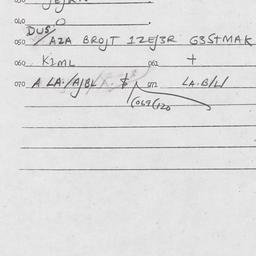 040 O
DUS/
050 AZA BROJT 1ZEJ3R G3StMAK
060 KIML 061 +
070 A LA./AJBL/ $ 071 LA.B/L/
(069(120